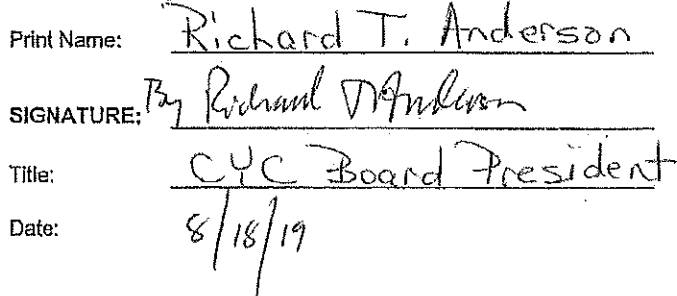 Print Name: Richard T. Anderson
SIGNATURE: By Richard T Anderson
Title: CYC Board President
Date: 8/18/19